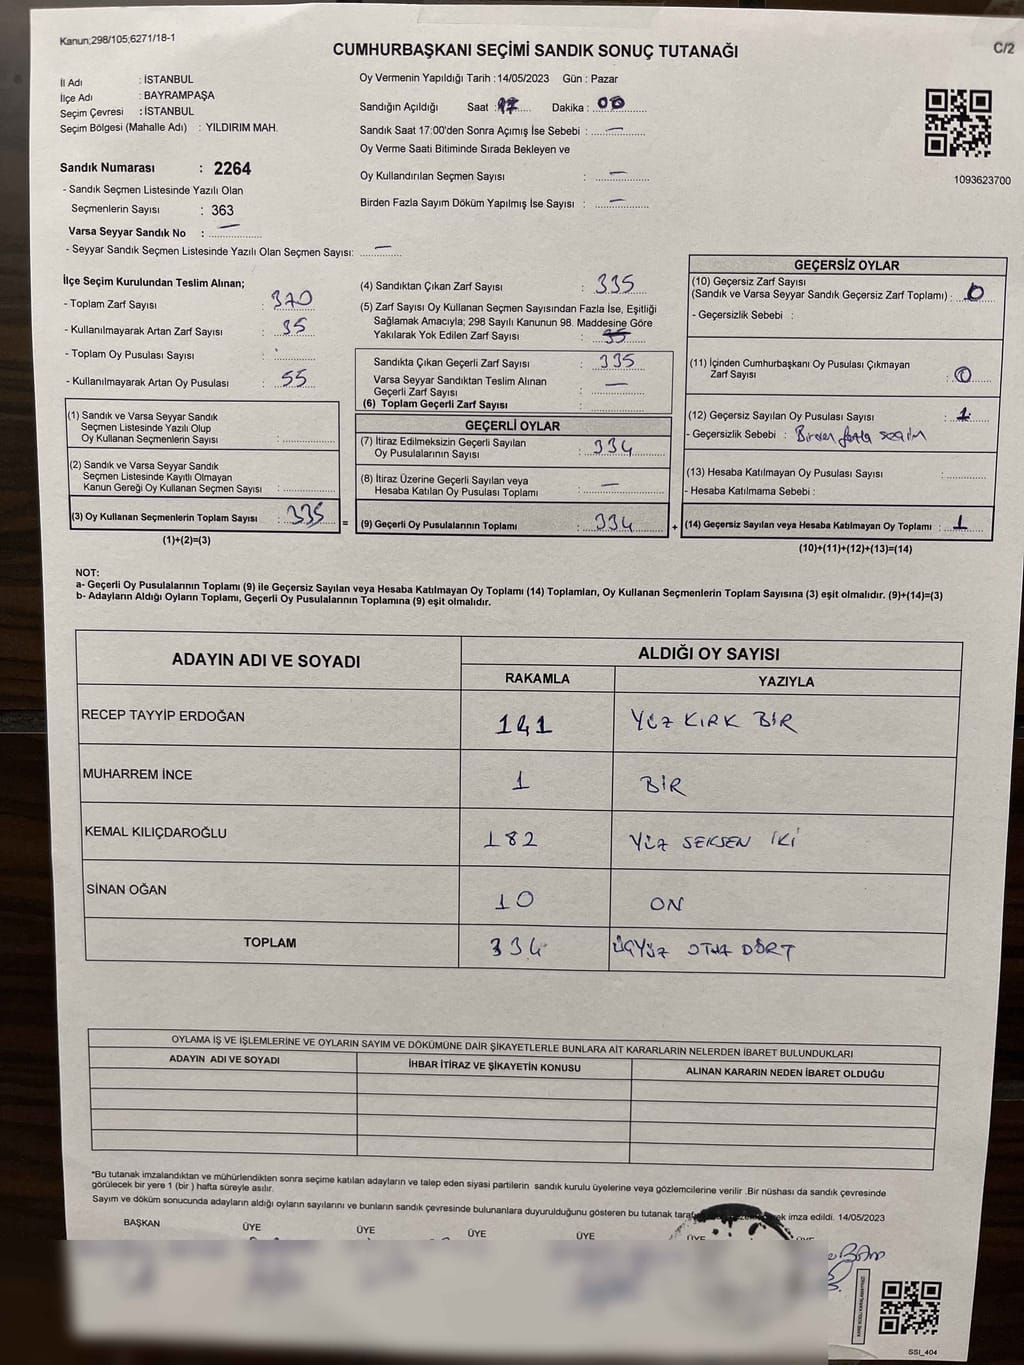 Kanun;298/105;6271/18-1
CUMHURBAŞKANI SEÇİMİ SANDIK SONUÇ TUTANAĞI
C/2
İl Adı : İSTANBUL
İlçe Adı : BAYRAMPAŞA
Seçim Çevresi : İSTANBUL
Seçim Bölgesi (Mahalle Adı) : YILDIRIM MAH.
Oy Vermenin Yapıldığı Tarih :14/05/2023 Gün : Pazar
Sandığın Açıldığı Saat :17 Dakika : 00
Sandık Saat 17:00'den Sonra Açımış İse Sebebi : —
Oy Verme Saati Bitiminde Sırada Bekleyen ve
Oy Kullandırılan Seçmen Sayısı : —
Birden Fazla Sayım Döküm Yapılmış İse Sayısı : —
1093623700
Sandık Numarası : 2264
- Sandık Seçmen Listesinde Yazılı Olan
Seçmenlerin Sayısı : 363
Varsa Seyyar Sandık No : —
- Seyyar Sandık Seçmen Listesinde Yazılı Olan Seçmen Sayısı: —
İlçe Seçim Kurulundan Teslim Alınan;
- Toplam Zarf Sayısı : 370
- Kullanılmayarak Artan Zarf Sayısı : 35
- Toplam Oy Pusulası Sayısı :
- Kullanılmayarak Artan Oy Pusulası : 55
(1) Sandık ve Varsa Seyyar Sandık
Seçmen Listesinde Yazılı Olup
Oy Kullanan Seçmenlerin Sayısı :
(2) Sandık ve Varsa Seyyar Sandık
Seçmen Listesinde Kayıtlı Olmayan
Kanun Gereği Oy Kullanan Seçmen Sayısı :
(3) Oy Kullanan Seçmenlerin Toplam Sayısı : 335
(1)+(2)=(3)
(4) Sandıktan Çıkan Zarf Sayısı : 335
(5) Zarf Sayısı Oy Kullanan Seçmen Sayısından Fazla İse, Eşitliği
Sağlamak Amacıyla; 298 Sayılı Kanunun 98. Maddesine Göre
Yakılarak Yok Edilen Zarf Sayısı : 35
Sandıkta Çıkan Geçerli Zarf Sayısı : 335
Varsa Seyyar Sandıktan Teslim Alınan
Geçerli Zarf Sayısı : —
(6) Toplam Geçerli Zarf Sayısı :
GEÇERLİ OYLAR
(7) İtiraz Edilmeksizin Geçerli Sayılan
Oy Pusulalarının Sayısı : 334
(8) İtiraz Üzerine Geçerli Sayılan veya
Hesaba Katılan Oy Pusulası Toplamı : —
= (9) Geçerli Oy Pusulalarının Toplamı : 334
GEÇERSİZ OYLAR
(10) Geçersiz Zarf Sayısı
(Sandık ve Varsa Seyyar Sandık Geçersiz Zarf Toplamı) : 0
- Geçersizlik Sebebi :
(11) İçinden Cumhurbaşkanı Oy Pusulası Çıkmayan
Zarf Sayısı : 0
(12) Geçersiz Sayılan Oy Pusulası Sayısı : 1
- Geçersizlik Sebebi : Birden fazla seçim
(13) Hesaba Katılmayan Oy Pusulası Sayısı :
- Hesaba Katılmama Sebebi :
+ (14) Geçersiz Sayılan veya Hesaba Katılmayan Oy Toplamı : 1
(10)+(11)+(12)+(13)=(14)
NOT:
a- Geçerli Oy Pusulalarının Toplamı (9) ile Geçersiz Sayılan veya Hesaba Katılmayan Oy Toplamı (14) Toplamları, Oy Kullanan Seçmenlerin Toplam Sayısına (3) eşit olmalıdır. (9)+(14)=(3)
b- Adayların Aldığı Oyların Toplamı, Geçerli Oy Pusulalarının Toplamına (9) eşit olmalıdır.
ADAYIN ADI VE SOYADI
ALDIĞI OY SAYISI
RAKAMLA YAZIYLA
RECEP TAYYİP ERDOĞAN 141 YÜZ KIRK BİR
MUHARREM İNCE 1 BİR
KEMAL KILIÇDAROĞLU 182 YÜZ SEKSEN İKİ
SİNAN OĞAN 10 ON
TOPLAM 334 ÜÇYÜZ OTUZ DÖRT
OYLAMA İŞ VE İŞLEMLERİNE VE OYLARIN SAYIM VE DÖKÜMÜNE DAİR ŞİKAYETLERLE BUNLARA AİT KARARLARIN NELERDEN İBARET BULUNDUKLARI
ADAYIN ADI VE SOYADI İHBAR İTİRAZ VE ŞİKAYETİN KONUSU ALINAN KARARIN NEDEN İBARET OLDUĞU
*Bu tutanak imzalandıktan ve mühürlendikten sonra seçime katılan adayların ve talep eden siyasi partilerin sandık kurulu üyelerine veya gözlemcilerine verilir .Bir nüshası da sandık çevresinde
görülecek bir yere 1 (bir ) hafta süreyle asılır.
Sayım ve döküm sonucunda adayların aldığı oyların sayılarını ve bunların sandık çevresinde bulunanlara duyurulduğunu gösteren bu tutanak imza edildi. 14/05/2023
BAŞKAN ÜYE ÜYE ÜYE ÜYE ÜYE
SSI_404